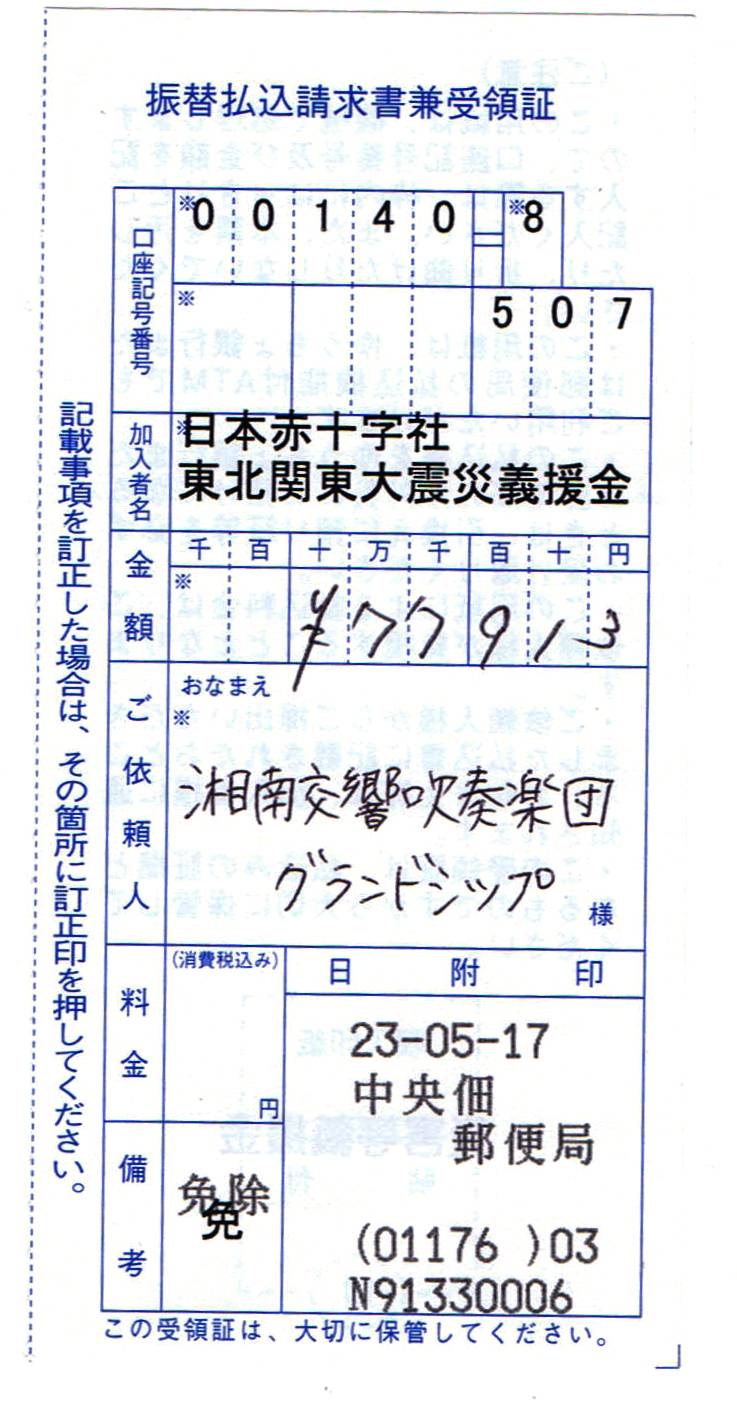 振替払込請求書兼受領証
口座記号番号
※00140=※8
※507
加入者名
※日本赤十字社
東北関東大震災義援金
金額
千百十万千百十円
※¥77913
ご依頼人
おなまえ
※
湘南交響吹奏楽団
グランドシップ
様
料金
(消費税込み)
円
日附印
23-05-17
中央佃
郵便局
(01176 )03
N91330006
備考
免除
免
この受領証は、大切に保管してください。
記載事項を訂正した場合は、その箇所に訂正印を押してください。